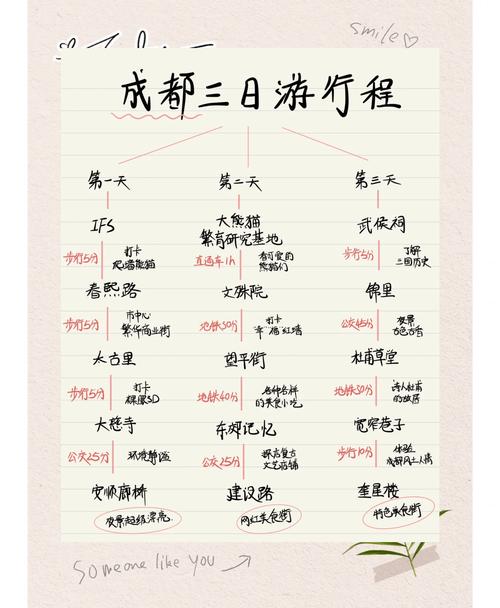 smile
成都三日游行程
第一天
IFS
步行5分
打卡
爬墙熊猫
春熙路
步行5分
市中心
繁华商业街
太古里
步行5分
打卡
裸眼3D
大慈寺
公交25分
环境静谧
安顺廊桥
夜景超级漂亮
第二天
大熊猫
繁育研究基地
直通车1h
看可爱的
熊猫们
文殊院
地铁30分
打卡
幸福红墙
望平街
地铁40分
各种各样
的美食小吃
东郊记忆
公交25分
探店复古
文艺店铺
建设路
网红美食街
第三天
武侯祠
步行5分
了解
三国历史
锦里
公交45分
夜景
古色古香
杜甫草堂
地铁30分
诗人杜甫
的故居
宽窄巷子
步行10分
体验
成都风土人情
奎星楼
特色美食街
Someone like you